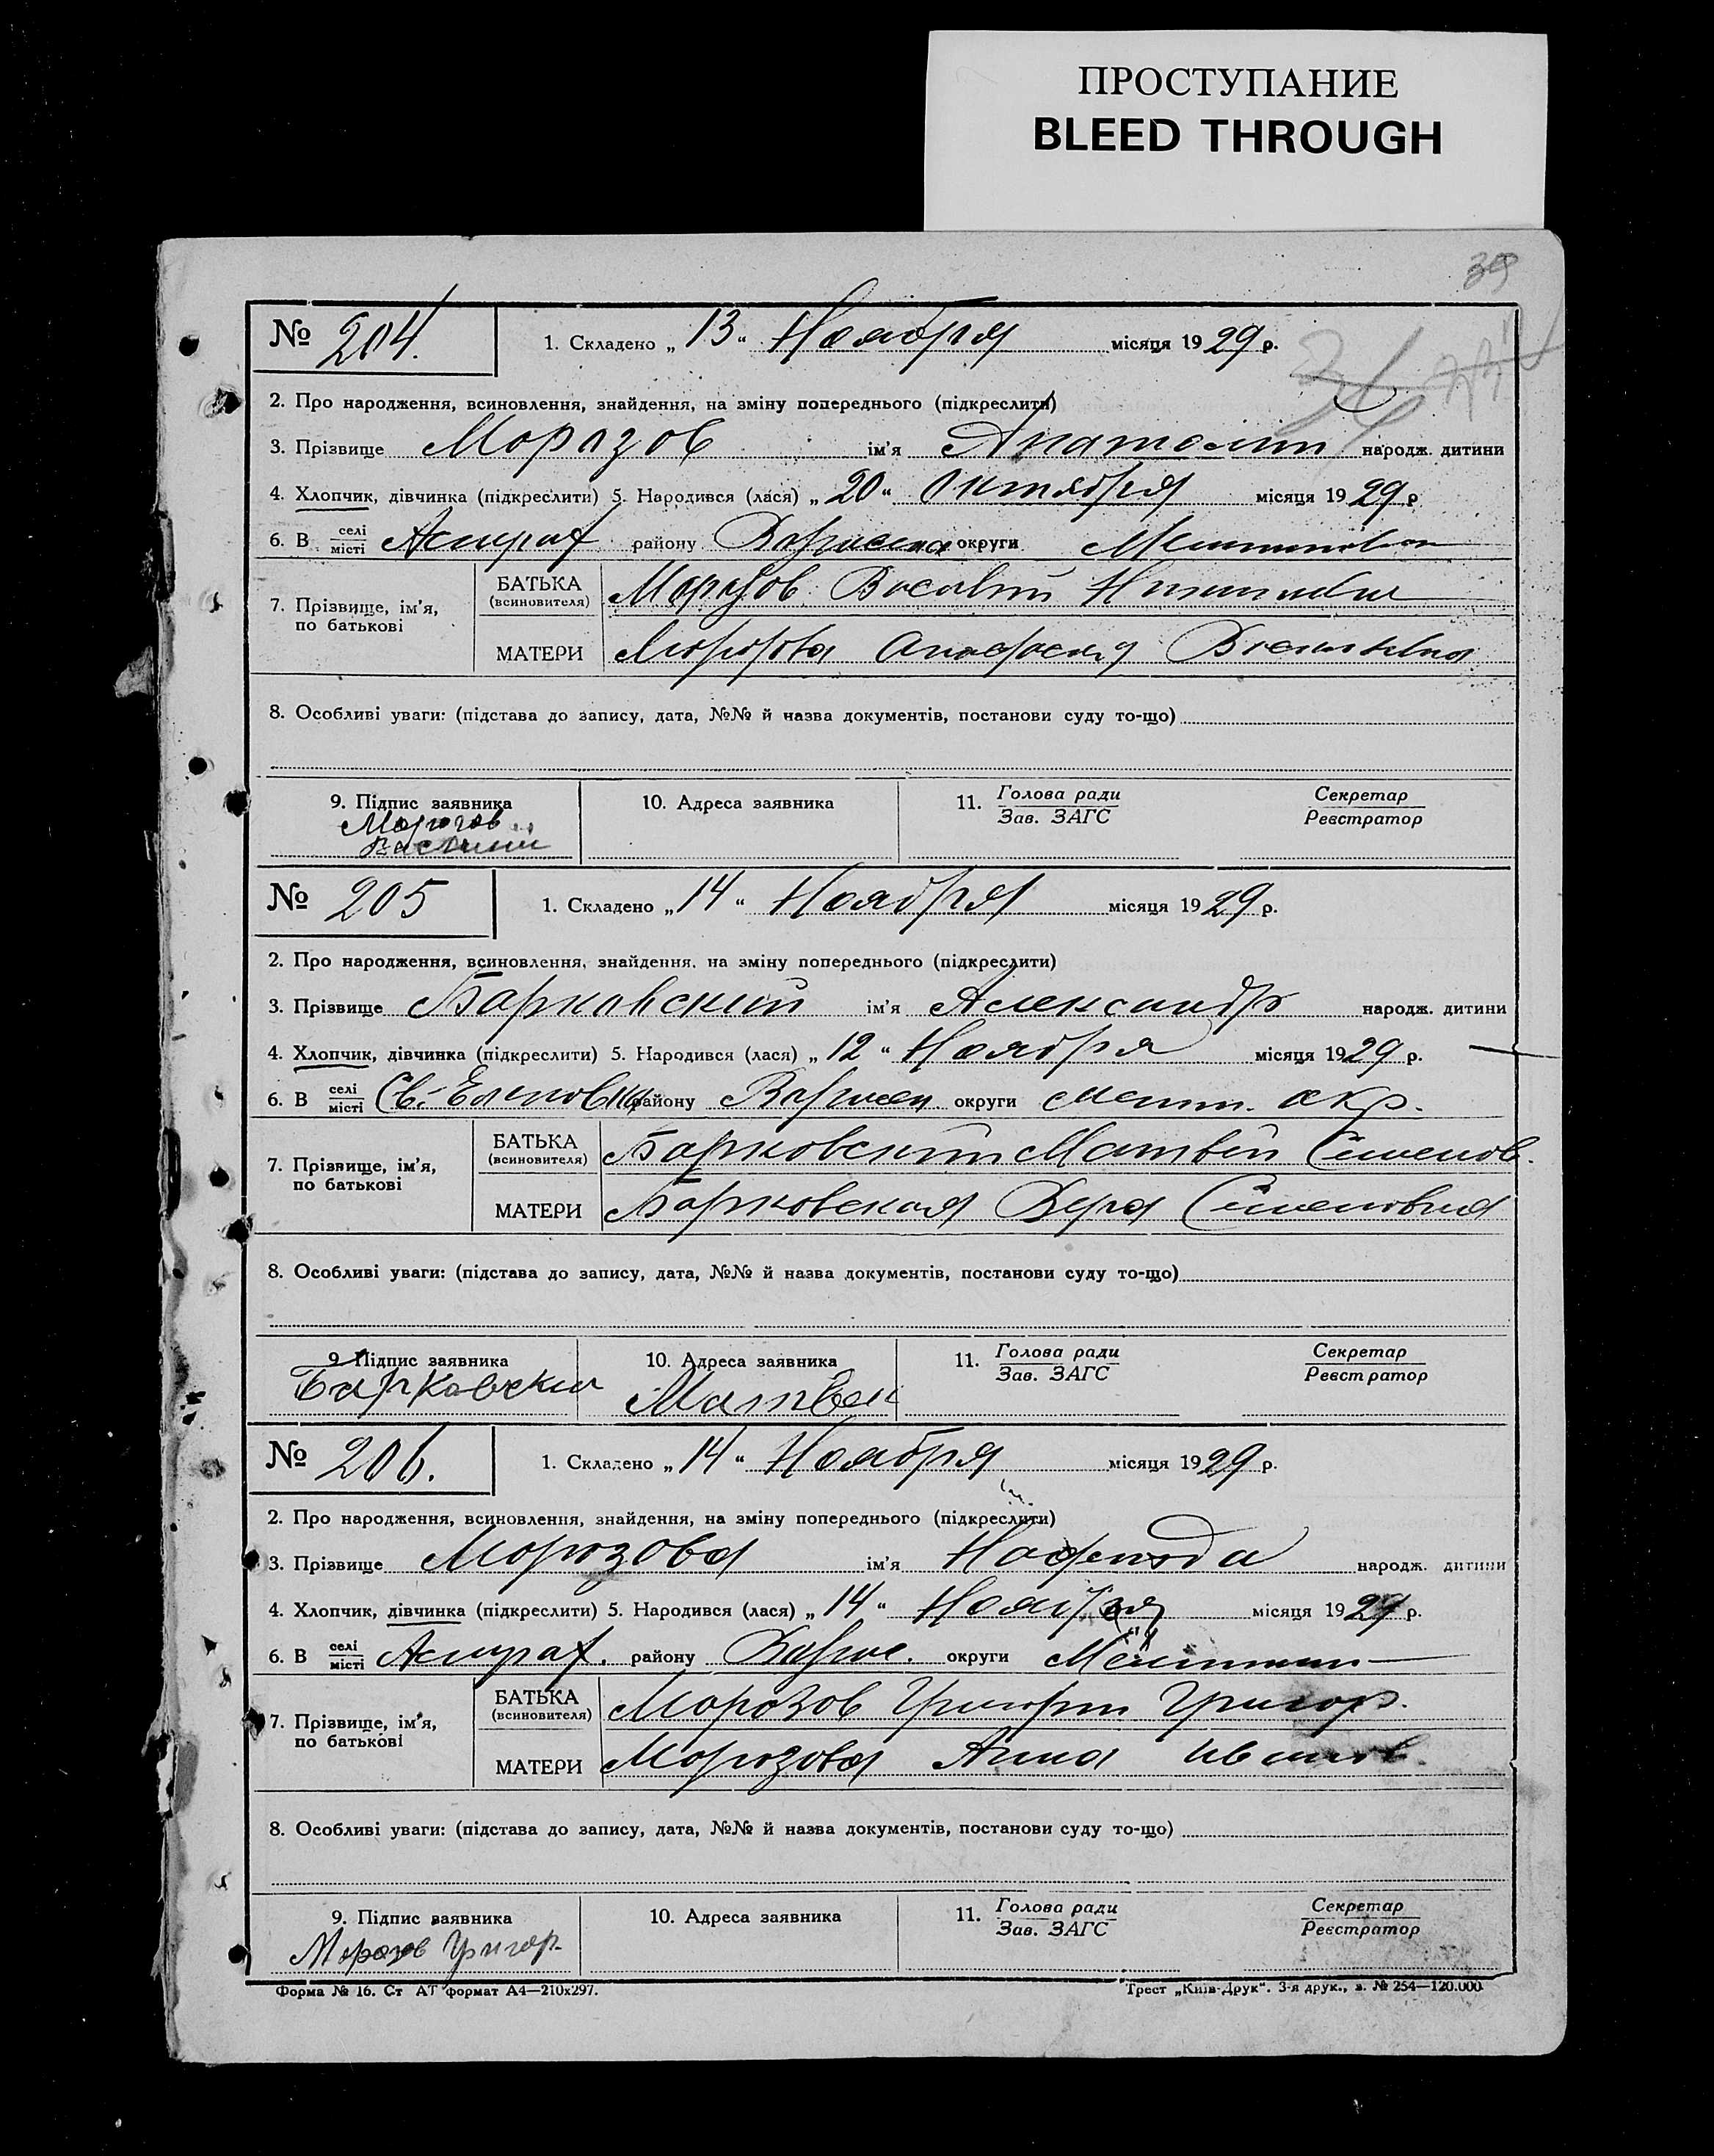 ПРОСТУПАНИЕ
BLEED THROUGH
39
№ 204. 1. Складено „ 13 “ Ноября місяця 1929 р.
2. Про народження, всиновлення, знайдення, на зміну попереднього (підкреслити)
3. Прізвище Морозов ім'я Анатолий народж. дитини
4. Хлопчик, дівчинка (підкреслити) 5. Народився (лася) „ 20 “ Октября місяця 1929 р
6. В селі/місті району округи
7. Прізвище, ім'я, по батькові
БАТЬКА (всиновителя) Морозов Василий
МАТЕРИ Морозова Васильевна
8. Особливі уваги: (підстава до запису, дата, №№ й назва документів, постанови суду то-що)
9. Підпис заявника 10. Адреса заявника 11. Голова ради/Зав. ЗАГС Секретар/Реєстратор
Морозов
Василий
№ 205 1. Складено „ 14 “ Ноября місяця 1929 р.
2. Про народження, всиновлення, знайдення, на зміну попереднього (підкреслити)
3. Прізвище Барковский ім'я Александр народж. дитини
4. Хлопчик, дівчинка (підкреслити) 5. Народився (лася) „ 12 “ Ноября місяця 1929 р.
6. В селі/місті Св.-Еленовка району округи окр.
7. Прізвище, ім'я, по батькові
БАТЬКА (всиновителя) Барковский Матвей Семенов.
МАТЕРИ Барковская Вера Семеновна
8. Особливі уваги: (підстава до запису, дата, №№ й назва документів, постанови суду то-що)
9. Підпис заявника 10. Адреса заявника 11. Голова ради/Зав. ЗАГС Секретар/Реєстратор
Барковский Матвей
№ 206. 1. Складено „ 14 “ Ноября місяця 1929 р.
2. Про народження, всиновлення, знайдення, на зміну попереднього (підкреслити)
3. Прізвище Морозова ім'я Надежда народж. дитини
4. Хлопчик, дівчинка (підкреслити) 5. Народився (лася) „ 14 “ Ноября місяця 1929 р.
6. В селі/місті району округи
7. Прізвище, ім'я, по батькові
БАТЬКА (всиновителя) Морозов Григорий Григор.
МАТЕРИ Морозова Анна Иванов.
8. Особливі уваги: (підстава до запису, дата, №№ й назва документів, постанови суду то-що)
9. Підпис заявника 10. Адреса заявника 11. Голова ради/Зав. ЗАГС Секретар/Реєстратор
Морозов Григор.
Форма № 16. Ст АТ формат А4—210х297. Трест „Київ-Друк“. 3-я друк., з. № 254—120.000